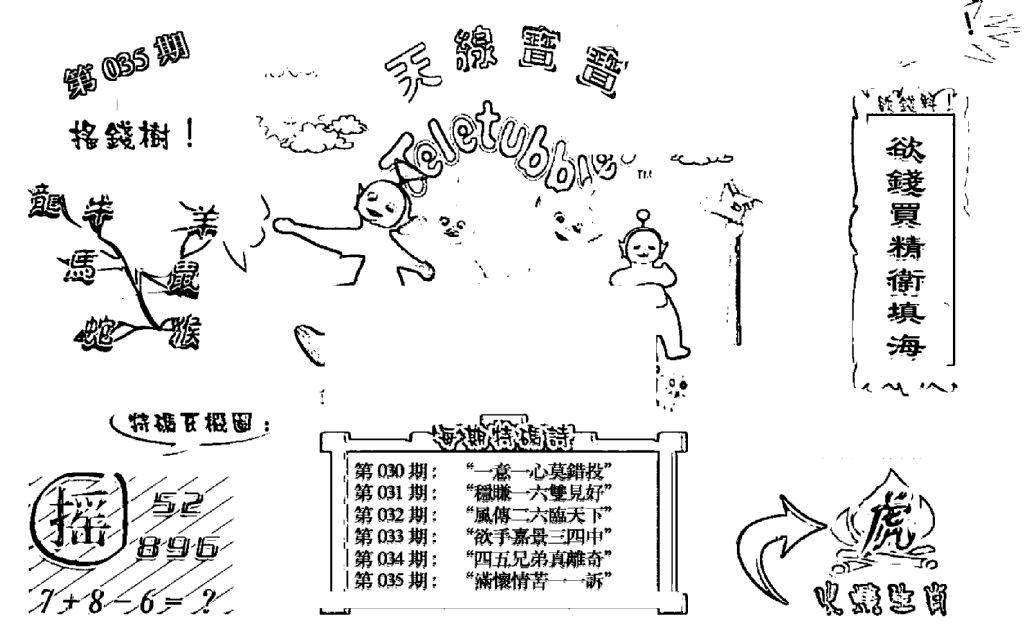 第 035 期
天線寶寶
Teletubbie
TM
搖錢樹！
龍 牛 羊
馬 鼠
蛇 猴
欲錢料！
欲錢買精衛填海
每期特碼詩
第 030 期： “一意一心莫錯投”
第 031 期： “穩賺一六雙見好”
第 032 期： “風傳二六臨天下”
第 033 期： “欲手嘉景三四中”
第 034 期： “四五兄弟真離奇”
第 035 期： “滿懷情苦一一訴”
搖
52
896
7+8-6=?
虎
火燒生肖